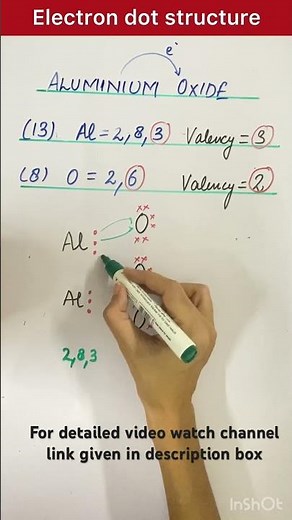 Electron dot structure
e⁻
ALUMINIUM OXIDE
(13) Al = 2,8,3 Valency = 3
(8) O = 2,6 Valency = 2
Al O
Al
2,8,3
For detailed video watch channel
link given in description box
InShOt